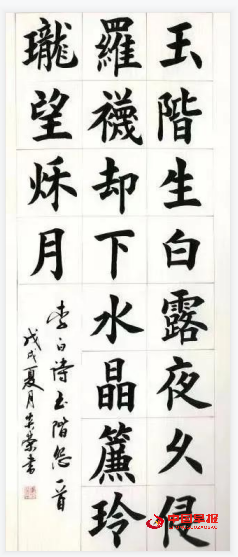 玉階生白露夜久侵
羅襪却下水晶簾玲
瓏望秋月
李白诗玉階怨一首
戊戌夏月荣書